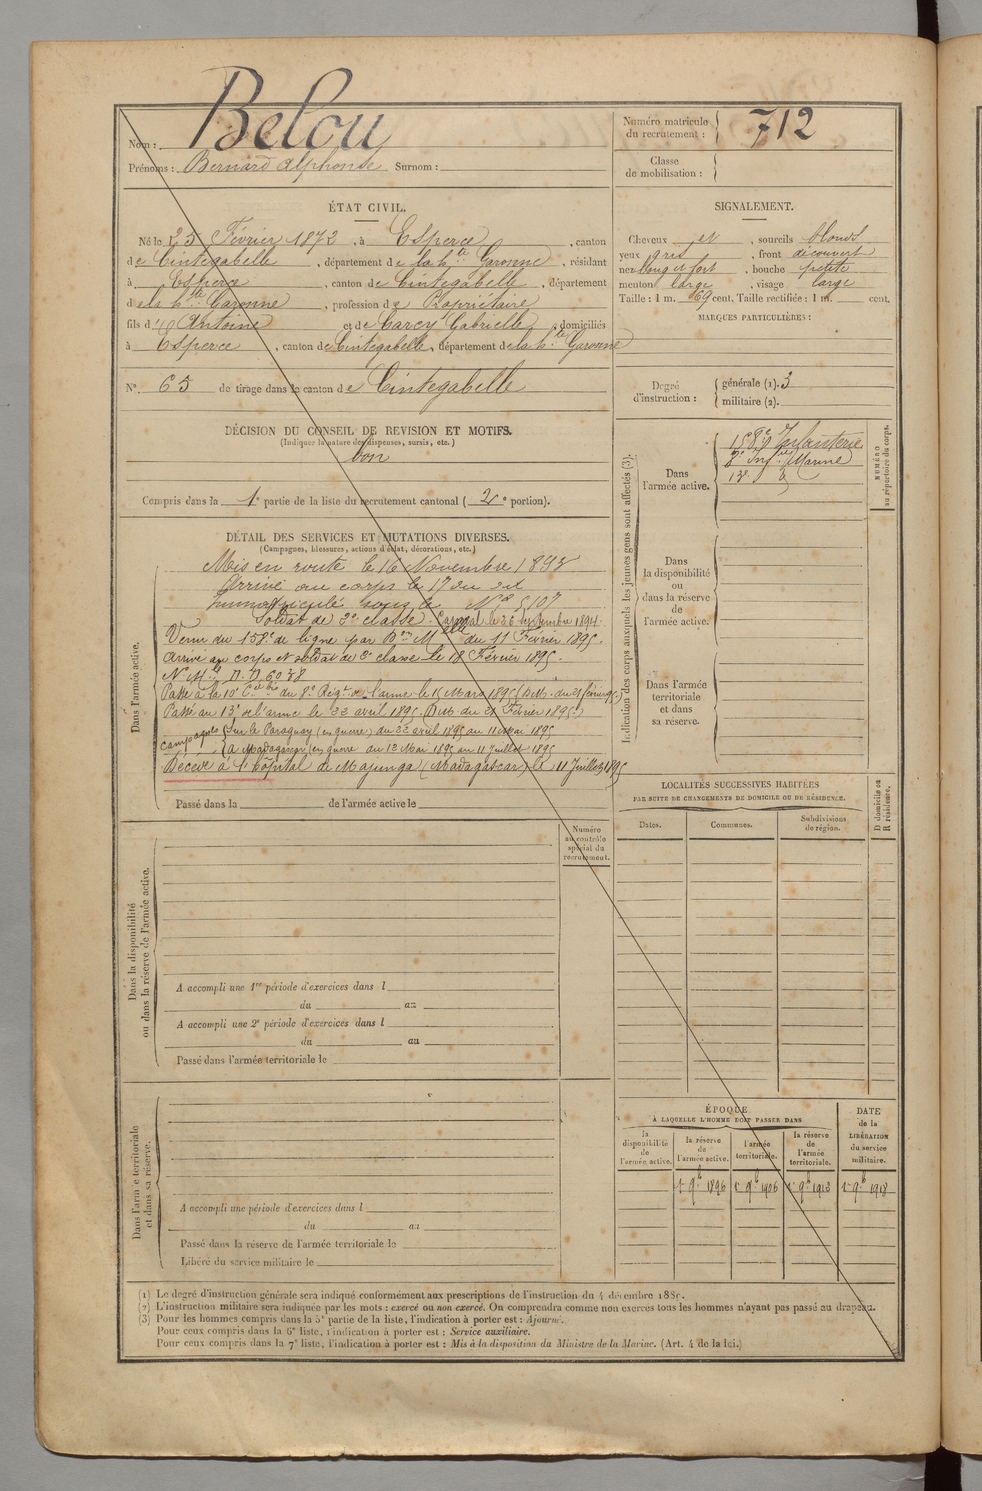 Nom : Belou
Prénoms : Bernard Alphonse Surnom :
Numéro matricule du recrutement : 712
Classe de mobilisation :
ÉTAT CIVIL.
Né le 25 Février 1872, à Esperce, canton
de Cintegabelle, département de la hte Garonne, résidant
à Esperce, canton de Cintegabelle, département
de la hte Garonne, profession de Propriétaire
fils d' Antoine et de Carcy Gabrielle, domiciliés
à Esperce, canton de Cintegabelle, département de la hte Garonne
No. 65 de tirage dans le canton de Cintegabelle
SIGNALEMENT.
Cheveux et, sourcils blonds
yeux gris, front découvert
nez long et fort, bouche petite
menton large, visage large
Taille : 1 m. 69 cent. Taille rectifiée : 1 m. cent.
MARQUES PARTICULIÈRES :
Degré d'instruction : générale (1). 3
militaire (2).
DÉCISION DU CONSEIL DE REVISION ET MOTIFS.
(Indiquer la nature des dispenses, sursis, etc.)
bon
Compris dans la 1e partie de la liste du recrutement cantonal (2e portion).
DÉTAIL DES SERVICES ET MUTATIONS DIVERSES.
(Campagnes, blessures, actions d'éclat, décorations, etc.)
Dans l'armée active.
Mis en route le 16 Novembre 1893
Arrivé au corps le 17 du dit
immatriculé sous le No 5107
Soldat de 2e classe. Caporal le 26 septembre 1894.
Venu du 158e de ligne par Don Mlle du 11 Février 1895.
Arrivé au corps et soldat de 2e classe le 18 Février 1895.
No Mle 6038
Passé à la 10e Cie bis du 8e Régt de l'arme le 15 Mars 1895 (D.M. du 21 février 95)
Passé au 13e de l'arme le 22 avril 1895. (D.M. du 21 Février 1895.)
Campagnes Sur le Paraguay (en guerre) du 22 avril 1895 au 11 mai 1895
à Madagascar (en guerre du 12 Mai 1895 au 11 Juillet 1895
Décédé à l'hôpital de Majunga (Madagascar) le 11 Juillet 1895
Passé dans la de l'armée active le
Indication des corps auxquels les jeunes gens sont affectés (3).
Dans l'armée active.
158e d'Infanterie
8e Infie Marine
13e d
NUMÉRO au répertoire du corps.
Dans la disponibilité ou dans la réserve de l'armée active.
Dans l'armée territoriale et dans sa réserve.
LOCALITÉS SUCCESSIVES HABITÉES
PAR SUITE DE CHANGEMENTS DE DOMICILE OU DE RÉSIDENCE.
Dates. Communes. Subdivisions de région. D domicile ou R résidence.
Dans la disponibilité ou dans la réserve de l'armée active.
Numéro au contrôle spécial du recrutement.
A accompli une 1re période d'exercices dans l
du au
A accompli une 2e période d'exercices dans l
du au
Passé dans l'armée territoriale le
Dans l'armée territoriale et dans sa réserve.
A accompli une période d'exercices dans l
du au
Passé dans la réserve de l'armée territoriale le
Libéré du service militaire le
ÉPOQUE
À LAQUELLE L'HOMME DOIT PASSER DANS
la disponibilité de l'armée active. la réserve de l'armée active. l'armée territoriale. la réserve de l'armée territoriale. DATE de la LIBÉRATION du service militaire.
1r 9b 1896 1r 9b 1906 1r 9b 1912 1r 9b 1918
(1) Le degré d'instruction générale sera indiqué conformément aux prescriptions de l'instruction du 4 décembre 1885.
(2) L'instruction militaire sera indiquée par les mots : exercé ou non exercé. On comprendra comme non exercés tous les hommes n'ayant pas passé au drapeau.
(3) Pour les hommes compris dans la 5e partie de la liste, l'indication à porter est : Ajourné.
Pour ceux compris dans la 6e liste, l'indication à porter est : Service auxiliaire.
Pour ceux compris dans la 7e liste, l'indication à porter est : Mis à la disposition du Ministre de la Marine. (Art. 4 de la loi.)